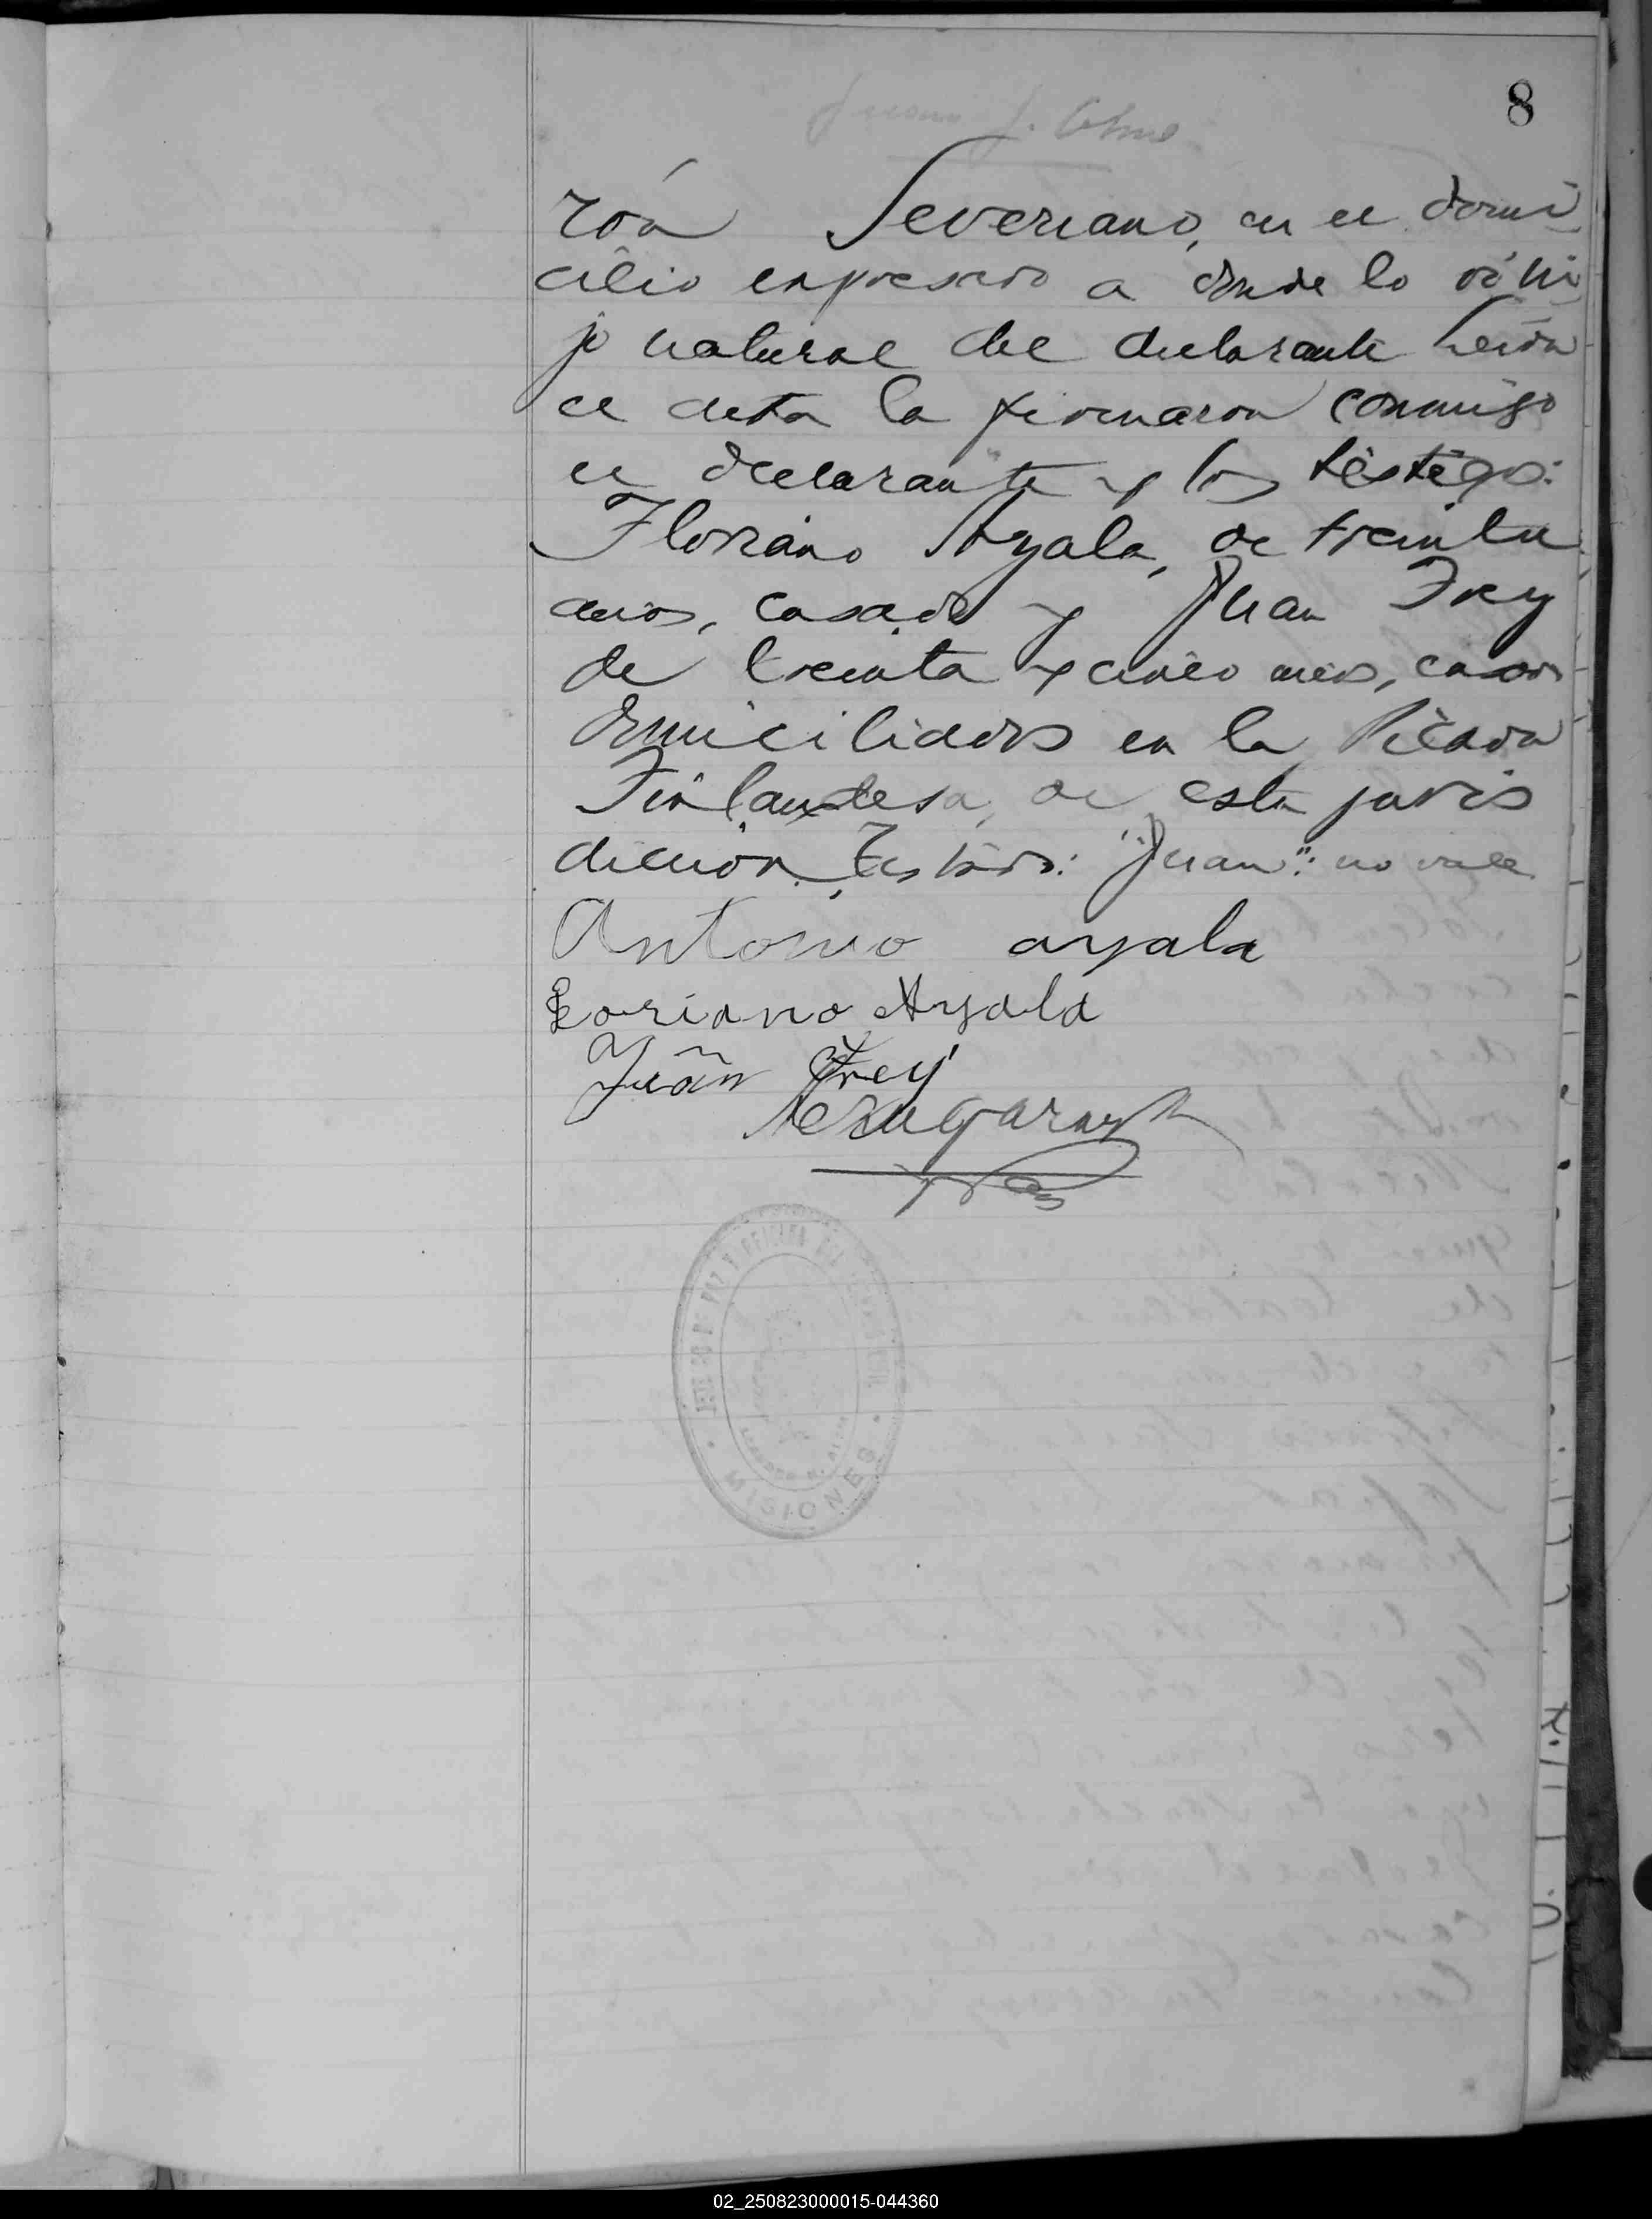 8
rón Severiano, en el domi
cilio expresado a donde lo vi hi
jo natural del declarante Leida
el acta la firmaron conmigo
el declarante y los testigos:
Floriano Ayala, de treinta
años, casado y Juan Frey
de treinta y cinco años, casado
domiciliados en la Picada
Finlandesa, de esta juris
dicción. Testado: "Juan": no vale
Antonio ayala
Loriano Ayala
Juan Frey
MISIONES
02_250823000015-044360